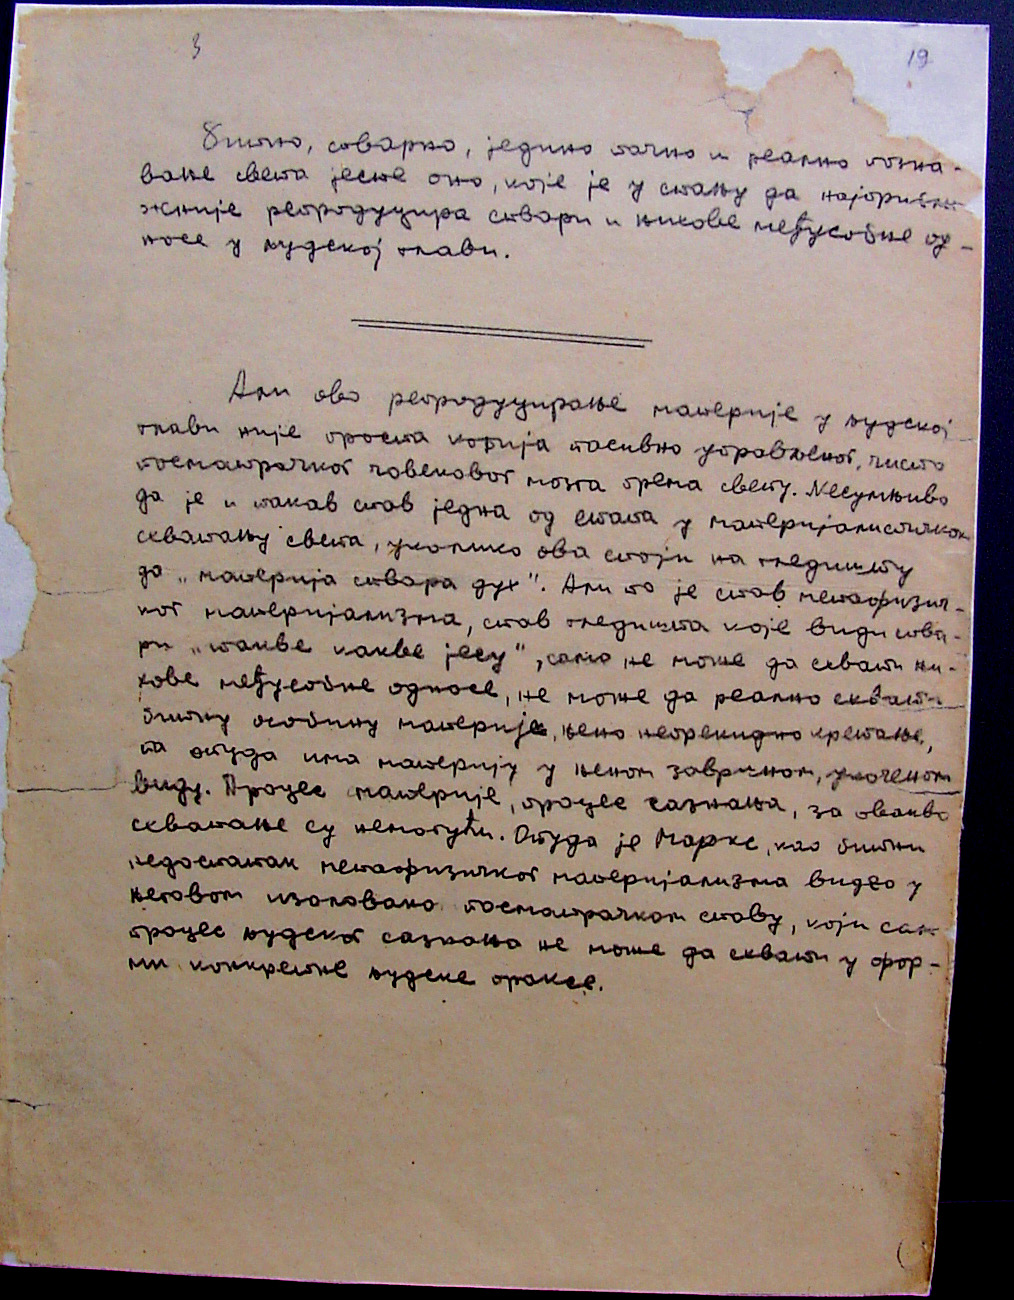 3
19
Битно, стварно, једино тачно и реално позна-
вање света јесте оно, које је у стању да најприбли-
жније репродуцира ствари и њихове међусобне од-
носе у људској глави.
Али ово репродуцирање материје у људској
глави није проста копија пасивно управљеног, чисто
посматрачког човековог мозга према свету. Несумњиво
да је и такав став једна од етапа у материјалистичком
схватању света, уколико ова стоји на гледишту
да „материја ствара дух”. Али то је став метафизич-
ког материјализма, став гледишта које види ства-
ри „такве какве јесу”, само не може да схвати њи-
хове међусобне односе, не може да реално схвати
битну особину материје, њено непрекидно кретање,
па отуда има материју у њеном завршном, укоченом
виду. Процес материје, процес сазнања, за овакво
схватање су немогући. Отуда је Маркс, као битни
недостатак метафизичког материјализма видео у
његовом изоловано посматрачком ставу, који сам
процес људског сазнања не може да схвати у фор-
ми конкретне људске праксе.